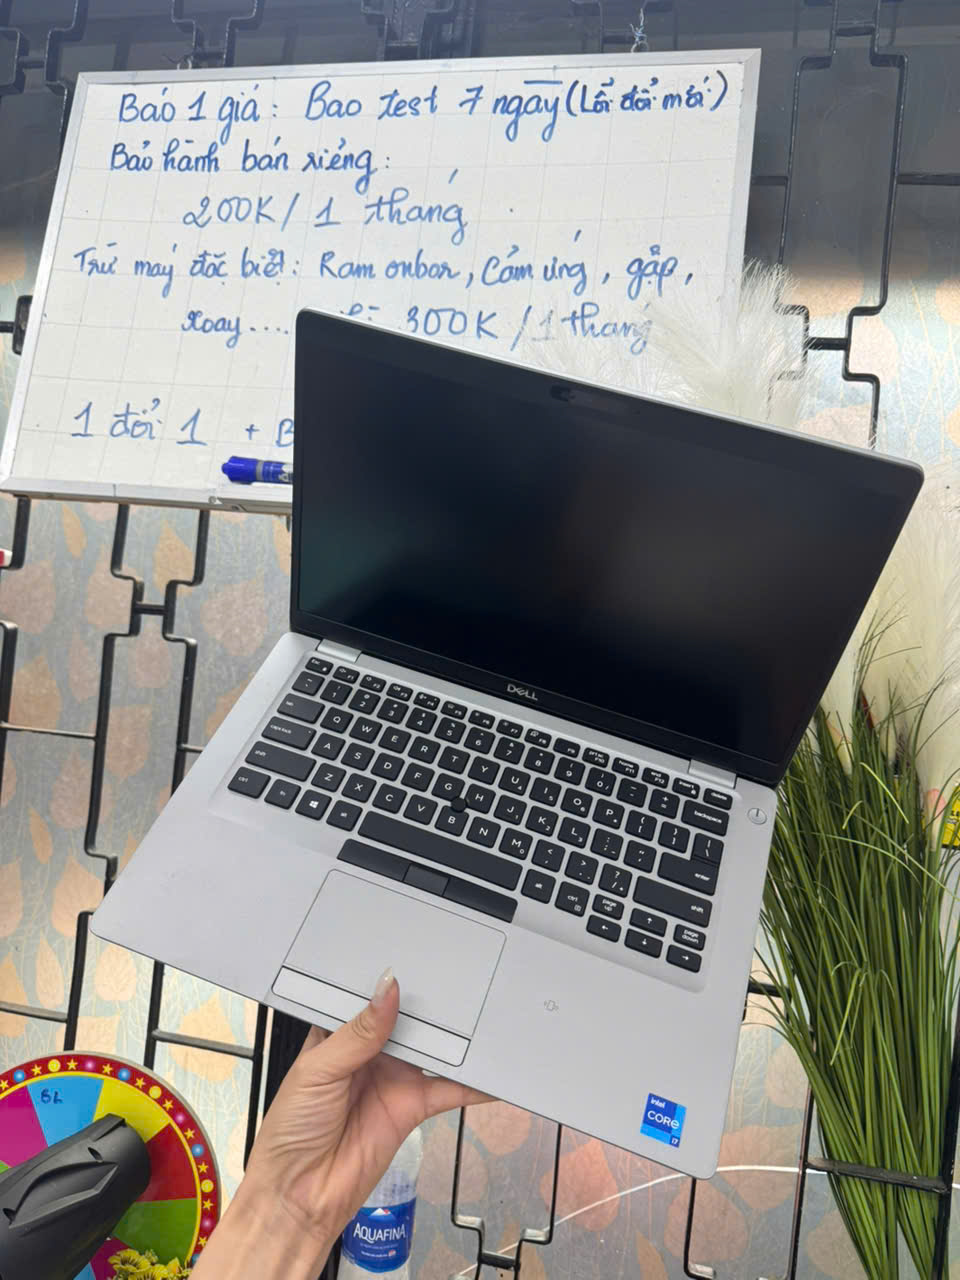 Báo 1 giá: Bao test 7 ngày (Lỗi đổi mới)
Bảo hành bán riêng:
200K / 1 tháng
Trừ máy đặc biệt: Ram onboar, Cảm ứng, gập,
xoay .... 300K / 1 tháng
1 đổi 1 + B
DELL
intel
CORE
i7
BL
AQUAFINA